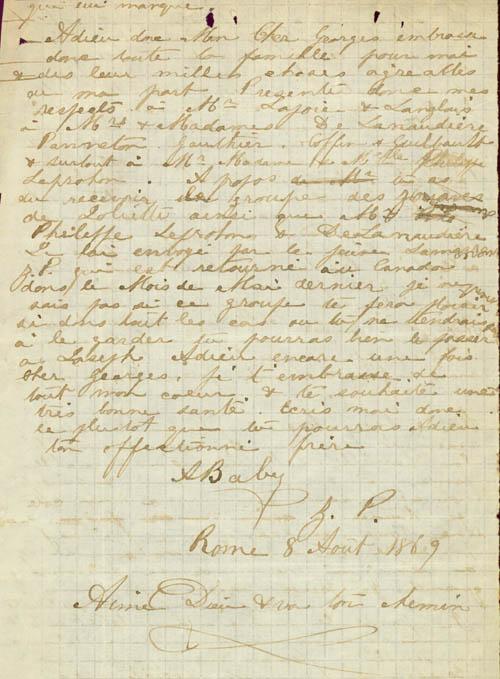 qui eu marque.
Adieu donc Mon Cher Georges embrasse
donc toute la famille pour moi
& dis leur milles choses agreables
de ma part Presente donc mes
respects à Mr Lajoie & Langlois
à Mrs & Mesdames De Lanaudière
Panneton Gauthier. Coffin & Guilbault
& surtout à Mr Madame & Melle
Leprohon. A propos tu as
du recevoir le groupe des zouaves
de Joliette ainsi que
Philippe Leprohon & DeLanaudière
Je l'ai envoyé par le jeune
Z.P. qui est retourné au Canada
dans le Mois de Mai dernier je ne
sais pas si ce groupe te fera plaisir
si dans tout les cas ou tu ne tiendrais
à le garder tu pourras bien le passer
a Joseph Adieu encore une fois
cher Georges, je t'embrasse de
tout mon coeur & te souhaite une
très bonne santé. Ecris moi donc
le plutot que tu pourras Adieu
ton affectionné frère
A Baby
Z. P.
Rome 8 Août 1869
Aime Dieu & va ton chemin